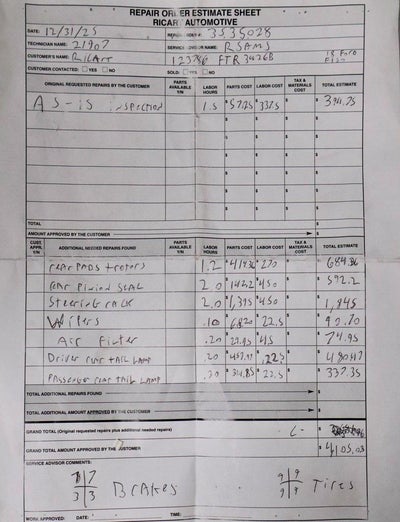 REPAIR ORDER ESTIMATE SHEET
RICART AUTOMOTIVE
DATE: 12/31/25 REPAIR ORDER #: 3535028
TECHNICIAN NAME: 21907 SERVICE ADVISOR NAME: RSAMS
CUSTOMER'S NAME: Ricart 123786 FTR3426B 18 Ford F150
CUSTOMER CONTACTED: YES NO SOLD: YES NO
ORIGINAL REQUESTED REPAIRS BY THE CUSTOMER PARTS AVAILABLE Y/N LABOR HOURS PARTS COST LABOR COST TAX & MATERIALS COST TOTAL ESTIMATE
AS-IS inspection 1.5 $57.25 $337.5 $ $394.75
TOTAL
AMOUNT APPROVED BY THE CUSTOMER
CUST. APPR. Y/N ADDITIONAL NEEDED REPAIRS FOUND PARTS AVAILABLE Y/N LABOR HOURS PARTS COST LABOR COST TAX & MATERIALS COST TOTAL ESTIMATE
rear pads + rotors 1.2 $414.36 $270 $ $684.36
rear pinion seal 2.0 $142.2 $450 $ $592.2
Steering rack 2.0 $1,395 $450 $ $1,845
Wipers .10 $68.20 $22.5 $ $90.70
Air Filter .20 $29.95 $45 $ $74.95
Driver rear tail lamp .20
Passenger rear tail lamp $314.85 $22.5 $ $337.35
TOTAL ADDITIONAL REPAIRS FOUND
TOTAL ADDITIONAL AMOUNT APPROVED BY THE CUSTOMER
GRAND TOTAL (Original requested repairs plus additional needed repairs)
GRAND TOTAL AMOUNT APPROVED BY THE CUSTOMER $4105.03
SERVICE ADVISOR COMMENTS:
7|7 Brakes 9|9 Tires
3|3 9|9
WORK APPROVED: DATE: TIME: